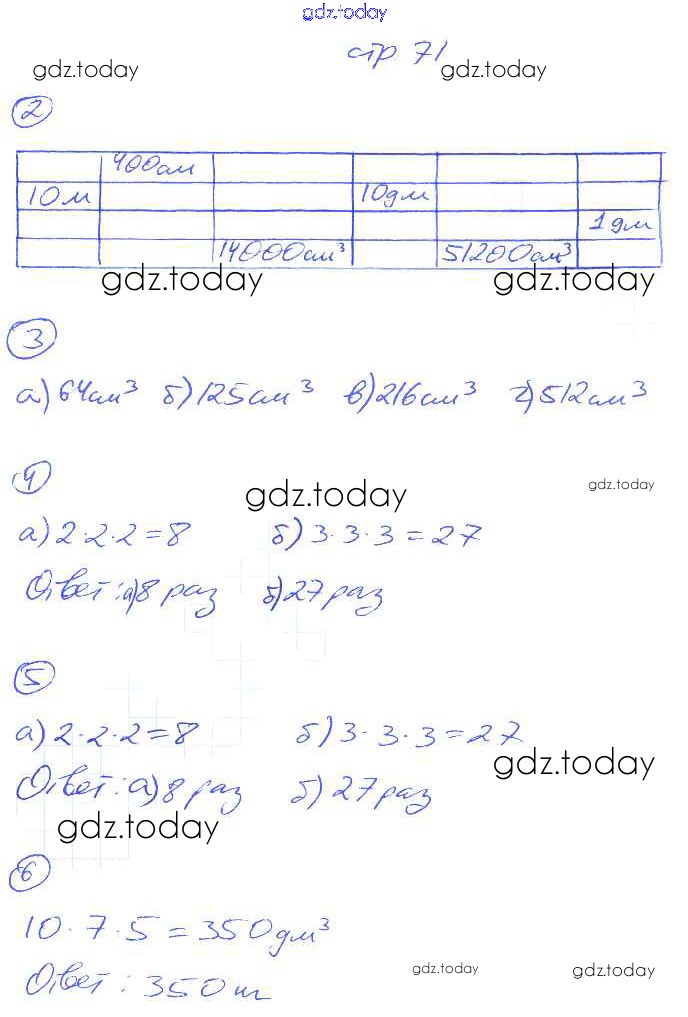 gdz.today
стр 71
gdz.today gdz.today
2
400см
10м 10дм
1дм
14000см³ 51200см³
gdz.today gdz.today
3
а) 64см³ б) 125см³ в) 216см³ г) 512см³
4
gdz.today gdz.today
а) 2·2·2=8 б) 3·3·3=27
Ответ: а) 8 раз б) 27 раз
5
а) 2·2·2=8 б) 3·3·3=27
gdz.today
Ответ: а) 8 раз б) 27 раз
gdz.today
6
10·7·5=350дм³
gdz.today gdz.today
Ответ: 350т